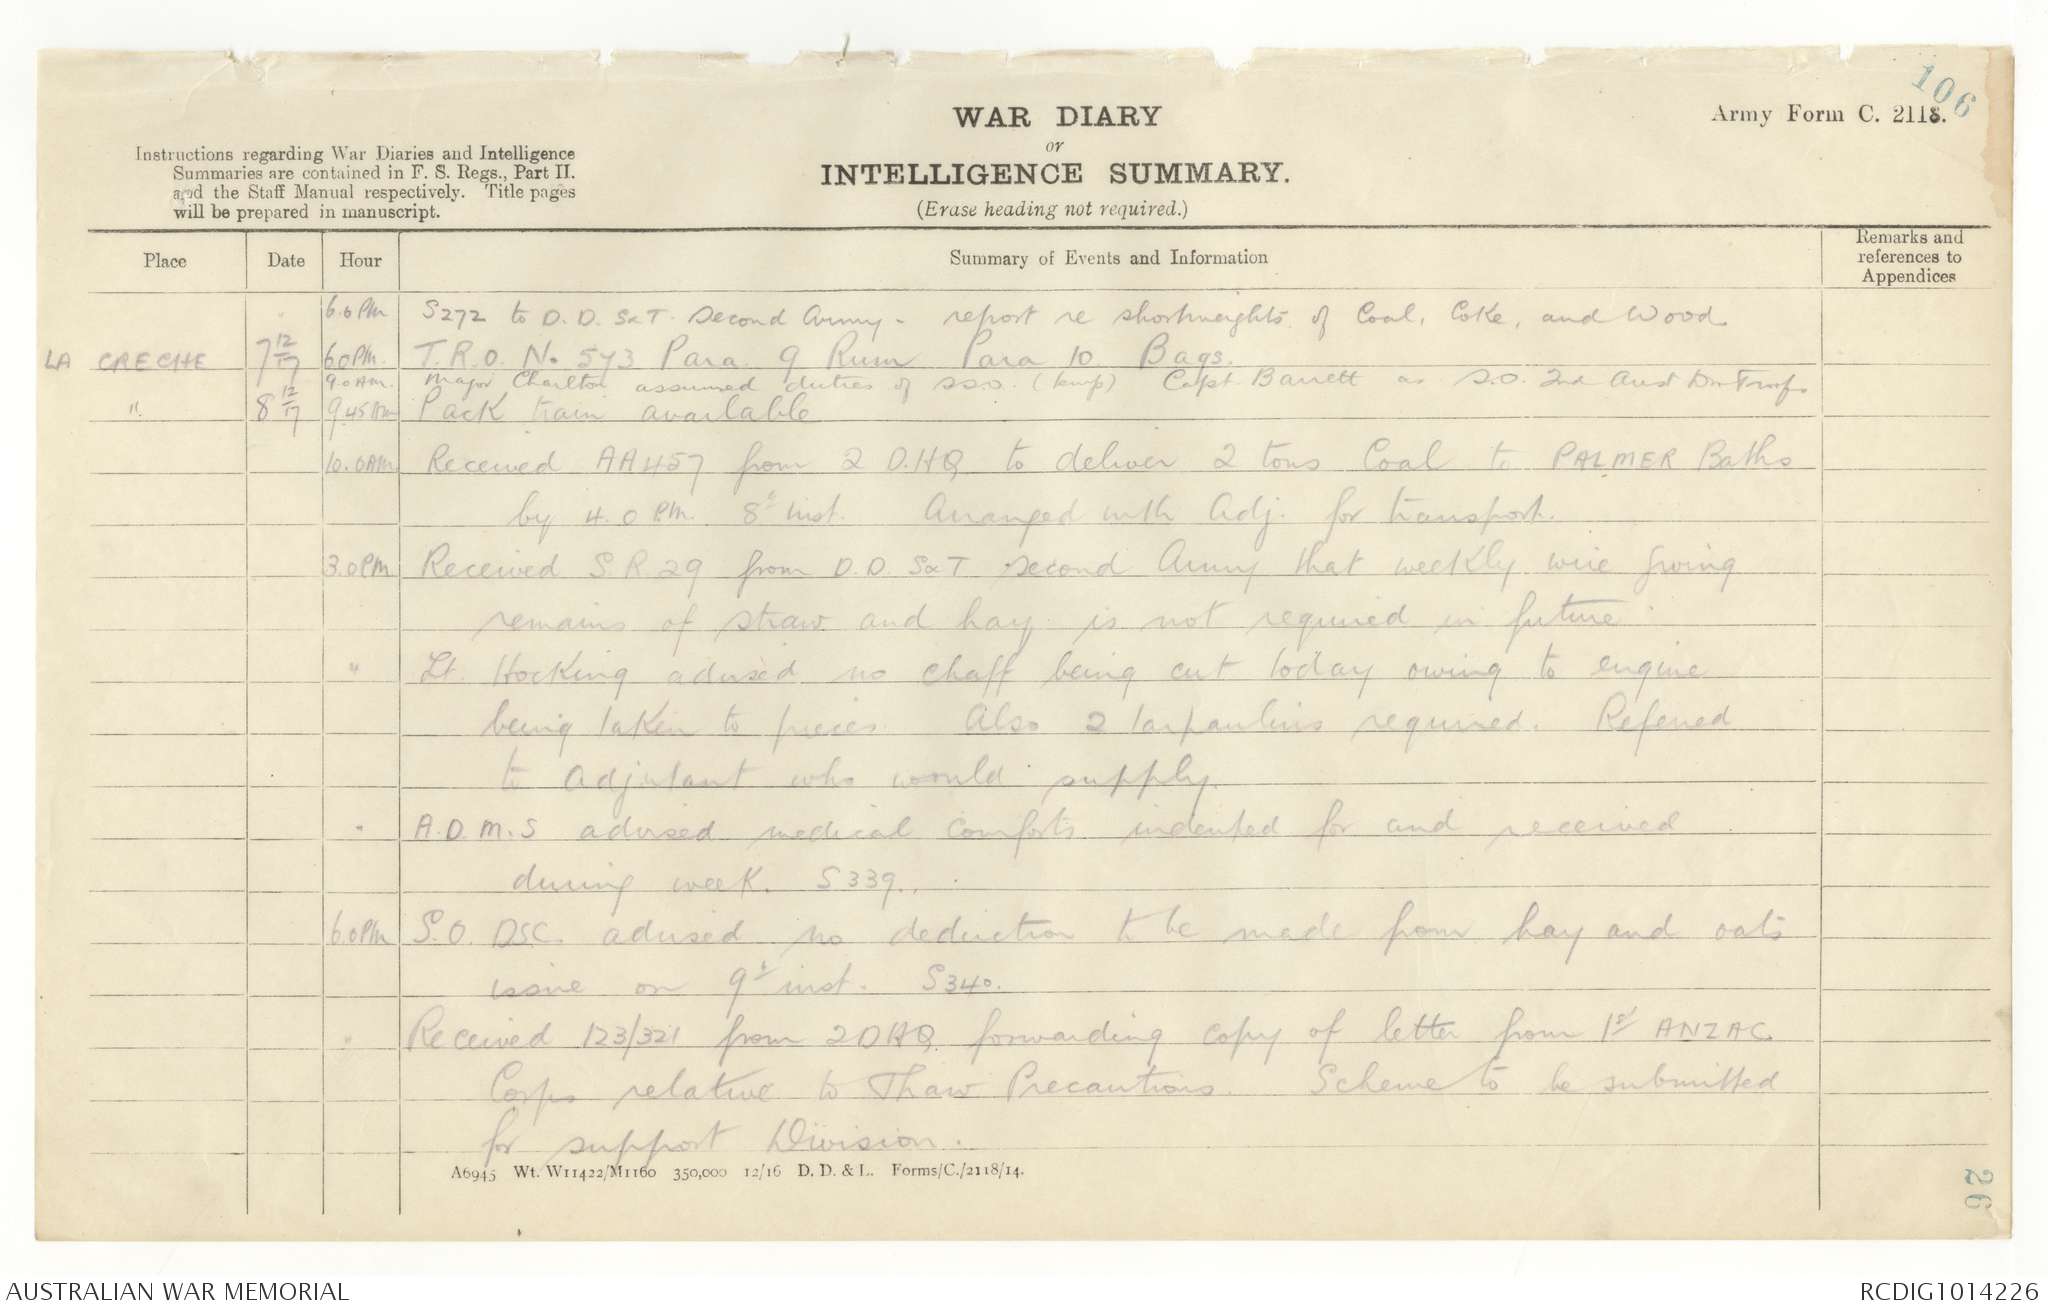 106
WAR DIARY
or
INTELLIGENCE SUMMARY.
(Erase heading not required.)
Army Form C. 2118.
Instructions regarding War Diaries and Intelligence
Summaries are contained in F. S. Regs., Part II.
and the Staff Manual respectively. Title pages
will be prepared in manuscript.
Place Date Hour Summary of Events and Information Remarks and references to Appendices
6.0 PM S272 to D.D. S&T. Second Army - report re shortweights of Coal, Coke, and Wood.
LA CRECHE 7 12/17 6.0 PM. T.R.O. No 573 Para 9 Rum Para 10 Bags.
9.0 AM. Major Charlton assumed duties of S.S.O. (temp) Capt Barrett as S.O. 2nd Aust Div Troops
" 8 12/17 9.45 AM Pack train available
10.0 AM Received AA457 from 2 D.HQ to deliver 2 tons Coal to PALMER Baths
by 4.0 P.M. 8th inst. Arranged with Adj. for transport.
3.0 PM Received S.R.29 from D.D. S&T Second Army that weekly wire giving
remains of straw and hay is not required in future
" Lt. Hocking advised no chaff being cut today owing to engine
being taken to pieces. Also 2 tarpaulins required. Referred
to Adjutant who would supply.
" A.D.M.S advised medical comforts indented for and received
during week. S339.
6.0 PM S.O. DSC. advised no deduction to be made from hay and oats
issue on 9th inst. S340.
" Received 123/321 from 2DHQ forwarding copy of letter from 1st ANZAC
Corps relative to Thaw Precautions. Scheme to be submitted
for support Division.
A6945 Wt. W11422/M1160 350,000 12/16 D. D. & L. Forms/C./2118/14.
26
AUSTRALIAN WAR MEMORIAL
RCDIG1014226